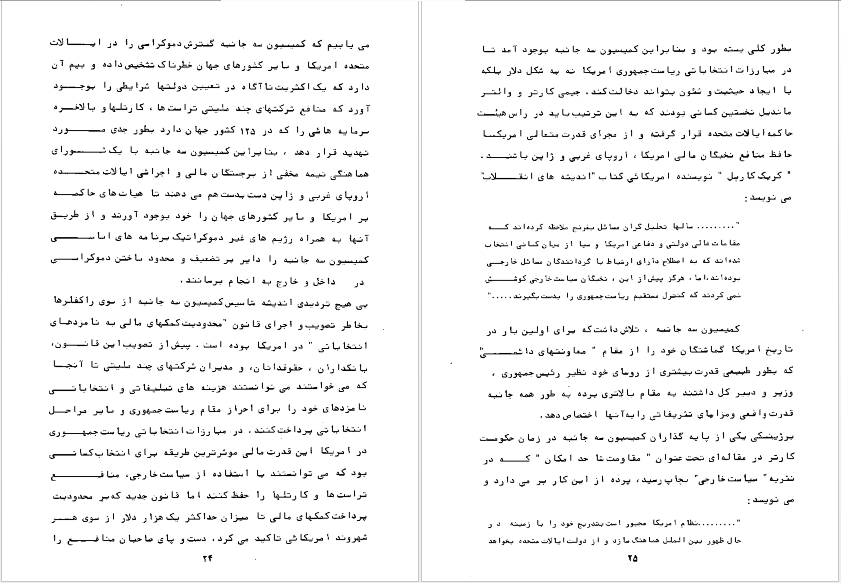 می یابیم که کمیسیون سه جانبه گسترش دموکراسی را در ایالات
متحده امریکا و سایر کشورهای جهان خطرناک تشخیص داده و بیم آن
دارد که یک اکثریت ناآگاه در تعیین دولتها شرایطی را بوجود
آورد که منافع شرکتهای چند ملیتی تراست ها ، کارتلها و بالاخره
سرمایه هائی را که در ۱۲۵ کشور جهان دارد بطور جدی مورد
تهدید قرار دهد ، بنابراین کمیسیون سه جانبه با یک شورای
هماهنگی نیمه مخفی از برجستگان مالی و اجرائی ایالات متحده
اروپای غربی و ژاپن دست بدست هم می دهند تا هیات های حاکمه
بر امریکا و سایر کشورهای جهان را خود بوجود آورند و از طریق
آنها به همراه رژیم های غیر دموکراتیک برنامه های اساسی
کمیسیون سه جانبه را دایر بر تضعیف و محدود ساختن دموکراسی
در داخل و خارج به انجام برسانند .
بی هیچ تردیدی اندیشه تاسیس کمیسیون سه جانبه از سوی راکفلرها
بخاطر تصویب و اجرای قانون "محدودیت کمکهای مالی به نامزدهای
انتخاباتی " در امریکا بوده است . پیش از تصویب این قانون،
بانکداران ، حقوقدانان ، و مدیران شرکتهای چند ملیتی تا آنجا
که می خواستند می توانستند هزینه های تبلیغاتی و انتخاباتی
نامزدهای خود را برای احراز مقام ریاست جمهوری و سایر مراحل
انتخاباتی پرداخت کنند. در مبارزات انتخاباتی ریاست جمهوری
در امریکا این قدرت مالی موثرترین طریقه برای انتخاب کسانی
بود که می توانستند با استفاده از سیاست خارجی، منافع
تراست ها و کارتلها را حفظ کنند اما قانون جدید که بر محدودیت
پرداخت کمکهای مالی تا میزان حداکثر یک هزار دلار از سوی هر
شهروند امریکائی تاکید می کرد، دست و پای صاحبان منافع را
۲۴
بطور کلی بسته بود و بنابراین کمیسیون سه جانبه بوجود آمد تا
در مبارزات انتخاباتی ریاست جمهوری آمریکا نه به شکل دلار بلکه
با ایجاد حیثیت و شئون بتواند دخالت کند. جیمی کارتر و والتر
ماندیل نخستین کسانی بودند که به این ترتیب باید در راس هیئت
حاکمه ایالات متحده قرار گرفته و از مجرای قدرت متعالی امریکا
حافظ منافع نخبگان مالی امریکا، اروپای غربی و ژاپن باشند.
" کریک کاربل " نویسنده امریکائی کتاب "اندیشه های انقلاب"
می نویسد:
"......... سالها تحلیل گران مسائل بغرنج ملاحظه کرده اند که
مقامات عالی دولتی و دفاعی امریکا و سیا از میان کسانی انتخاب
شده اند که به اصطلاح دارای ارتباط با گردانندگان مسائل خارجی
بوده اند، اما، هرگز پیش از این ، نخبگان سیاست خارجی کوشش
نمی کردند که کنترل مستقیم ریاست جمهوری را بدست بگیرند....."
کمیسیون سه جانبه ، تلاش داشت که برای اولین بار در
تاریخ آمریکا گماشتگان خود را از مقام " معاونتهای دائمی"
که بطور طبیعی قدرت بیشتری از روسای خود نظیر رئیس جمهوری ،
وزیر و دبیر کل داشتند به مقام بالاتری برده به طور همه جانبه
قدرت واقعی و مزایای تشریفاتی را به آنها اختصاص دهد.
برژینسکی یکی از پایه گذاران کمیسیون سه جانبه در زمان حکومت
کارتر در مقاله ای تحت عنوان " مقاومت تا حد امکان " که در
نشریه " سیاست خارجی" بچاپ رسید، پرده از این کار بر می دارد و
می نویسد:
".........نظام امریکا مجبور است بتدریج خود را با زمینه در
حال ظهور بین الملل هماهنگ سازد و از دولت ایالات متحده بخواهد
۲۵